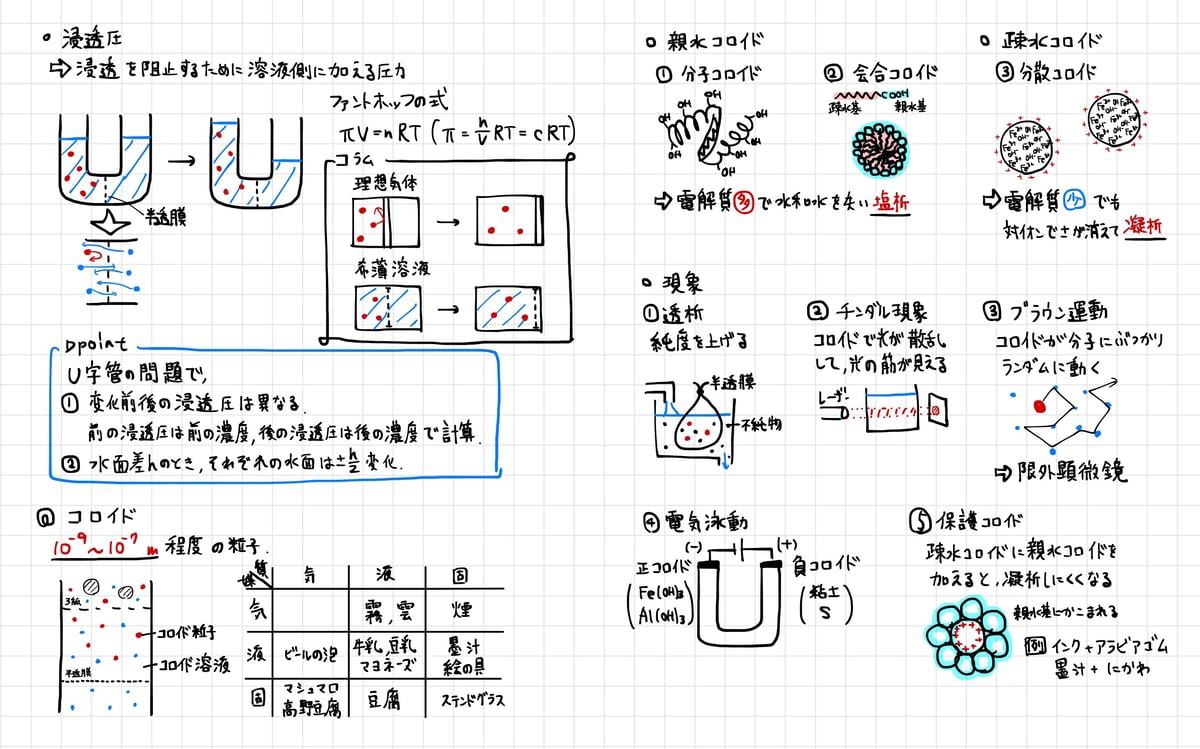 • 浸透圧
⇨ 浸透を阻止するために溶液側に加える圧力
ファントホッフの式
πV=nRT (π=n/V RT=cRT)
半透膜
コラム
理想気体
希薄溶液
point
U字管の問題で,
① 変化前後の浸透圧は異なる.
前の浸透圧は前の濃度,後の浸透圧は後の濃度で計算.
② 水面差hのとき,それぞれの水面は±h/2変化.
コロイド
10⁻⁹~10⁻⁷ m 程度の粒子.
ろ紙
半透膜
コロイド粒子
コロイド溶液
媒 質 気 液 固
気 霧,雲 煙
液 ビールの泡 牛乳,豆乳 マヨネーズ 墨汁 絵の具
固 マシュマロ 高野豆腐 豆腐 ステンドグラス
○ 親水コロイド
① 分子コロイド
OH OH OH OH OH OH OH OH
② 会合コロイド
COOH
疎水基 親水基
⇨ 電解質多で水和水を失い塩析
○ 疎水コロイド
③ 分散コロイド
⇨ 電解質少でも
対イオンで
消えて凝析
○ 現象
① 透析
純度を上げる
半透膜
不純物
② チンダル現象
コロイドで光が散乱
して,光の筋が見える
レーザー
③ ブラウン運動
コロイドが分子にぶつかり
ランダムに動く
⇨ 限外顕微鏡
④ 電気泳動
(-) (+)
正コロイド
(Fe(OH)₃
Al(OH)₃)
負コロイド
(粘土
S)
⑤ 保護コロイド
疎水コロイドに親水コロイドを
加えると,凝析しにくくなる
親水基にかこまれる
例 インク+アラビアゴム
墨汁+にかわ